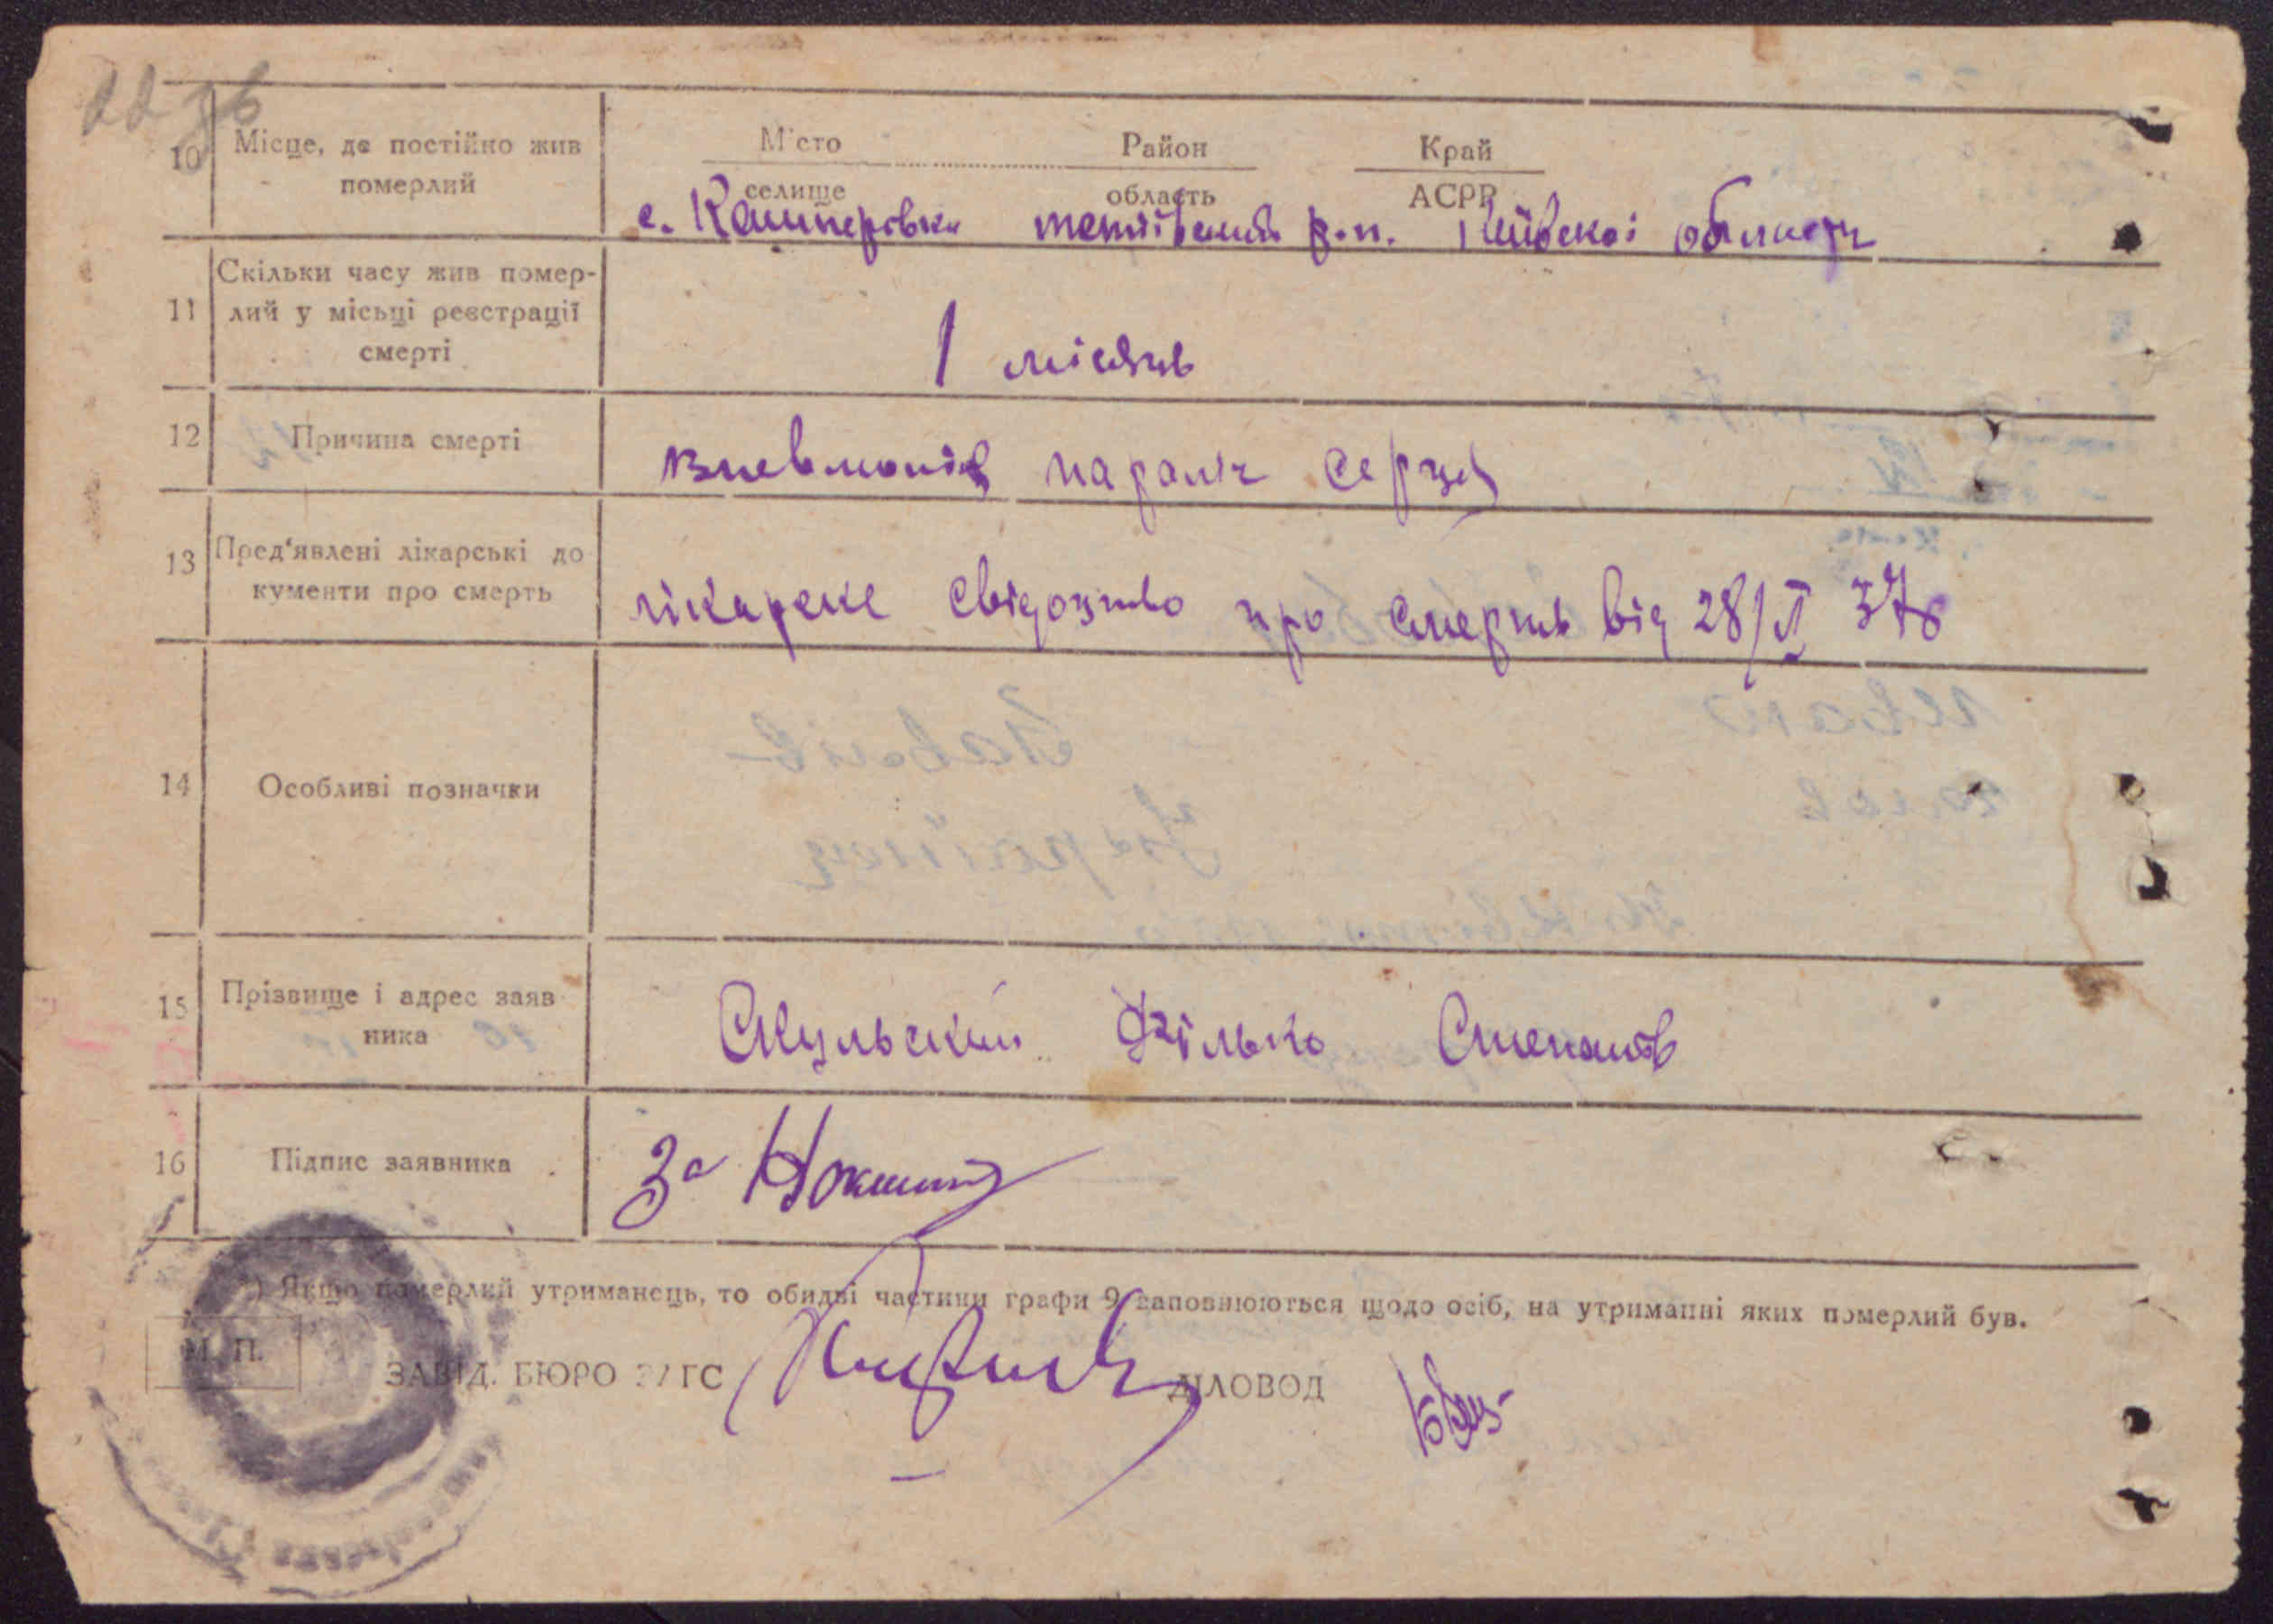 10 Місце, де постійно жив померлий
Місто селище Район область Край АСРР
с. Кашперовка тетіївський р-н. Київської області
11 Скільки часу жив помер-
лий у місьці реєстрації
смерті
1 місяць
12 Причина смерті
пневмонія параліч серця
13 Пред'явлені лікарські до
кументи про смерть
лікарске свідозтво про смерть від 28/II 37
14 Особливі позначки
15 Прізвище і адрес заяв
ника
Скульский Степанов
16 Підпис заявника
За
*) Якщо померлий утриманець, то обидві частини графи 9 заповнюються щодо осіб, на утриманні яких померлий був.
М. П.
ЗАВІД. БЮРО ЗАГС ДІЛОВОД